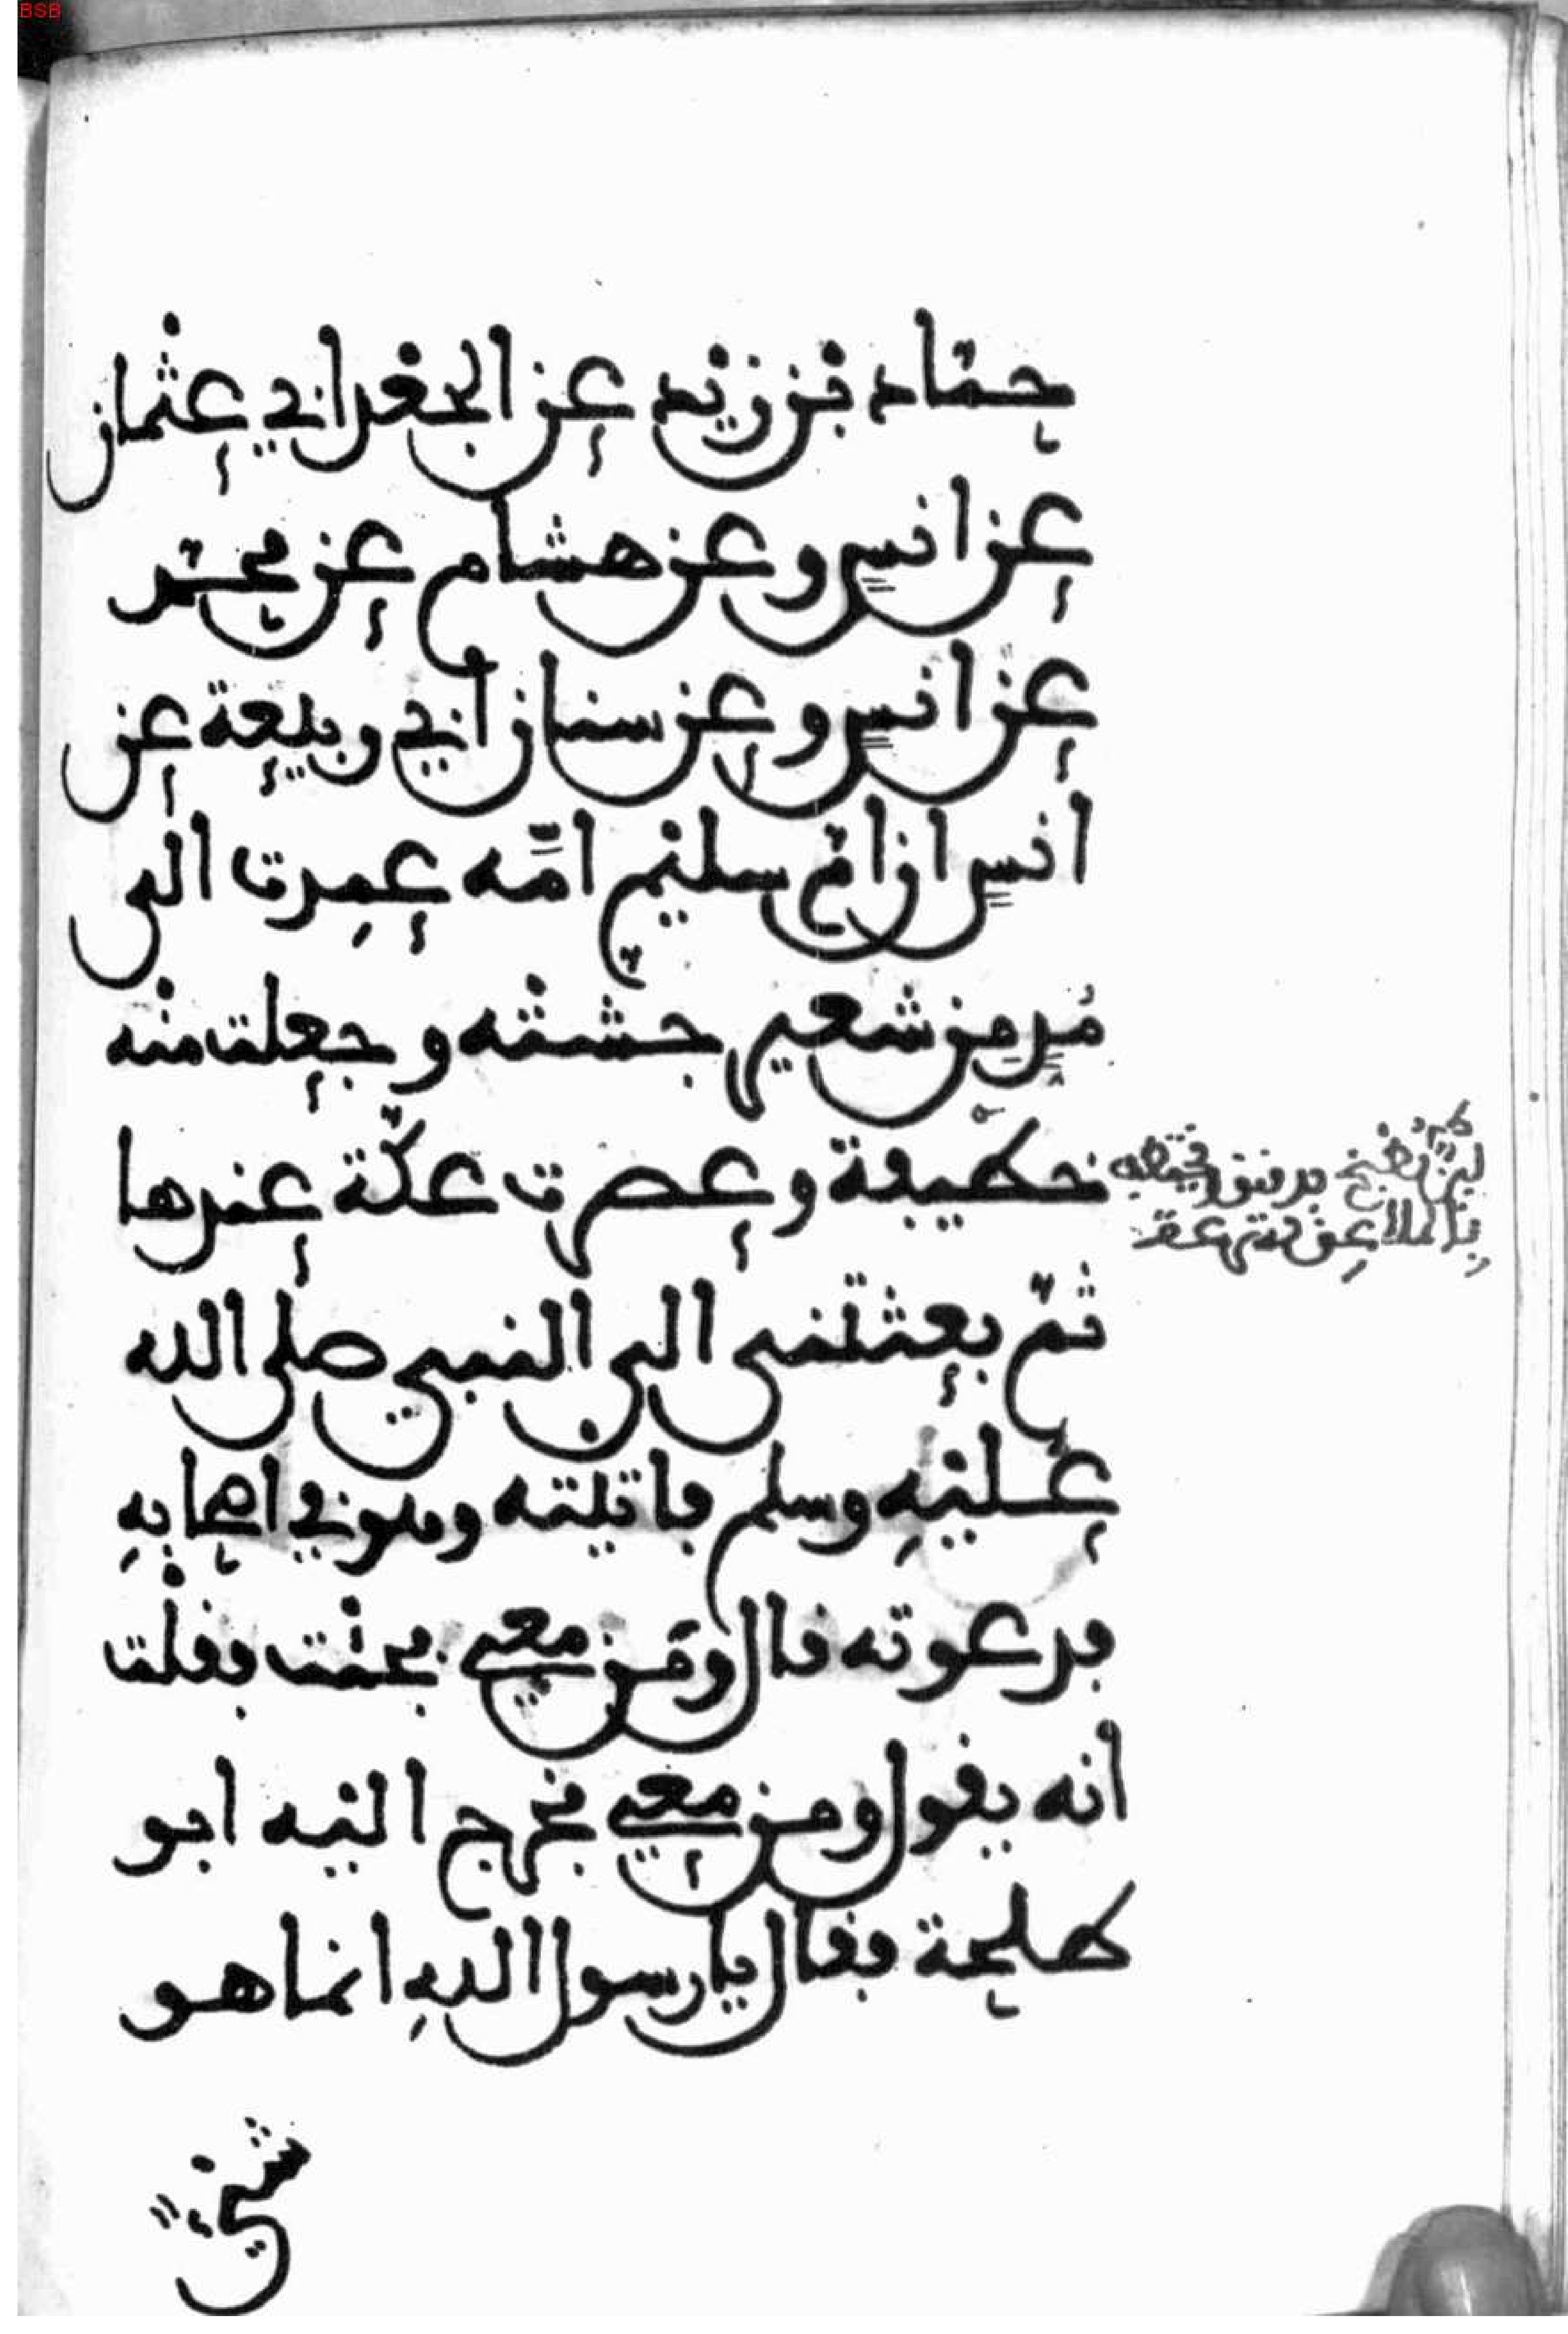 BSB
حمّاد بن زيد عن الجعد ابي عثمان
عن انس وعن هشام عن محمّد
عن انس وعن سنان ابي ربيعة عن
انس ان امّ سليم امّه عمدت الى
مُدٍّ من شعير جشته وجعلت منه
خطيفة وعصرت عكّة عندها
ثمّ بعثتنى الى النبي صلى الله
عليه وسلم فاتيته وهو في اصحابه
فدعوته فال ومن معي فجئت ففلت
انه يفول ومن معي فخرج اليه ابو
طلحة ففال يا رسول الله انما هو
شيء